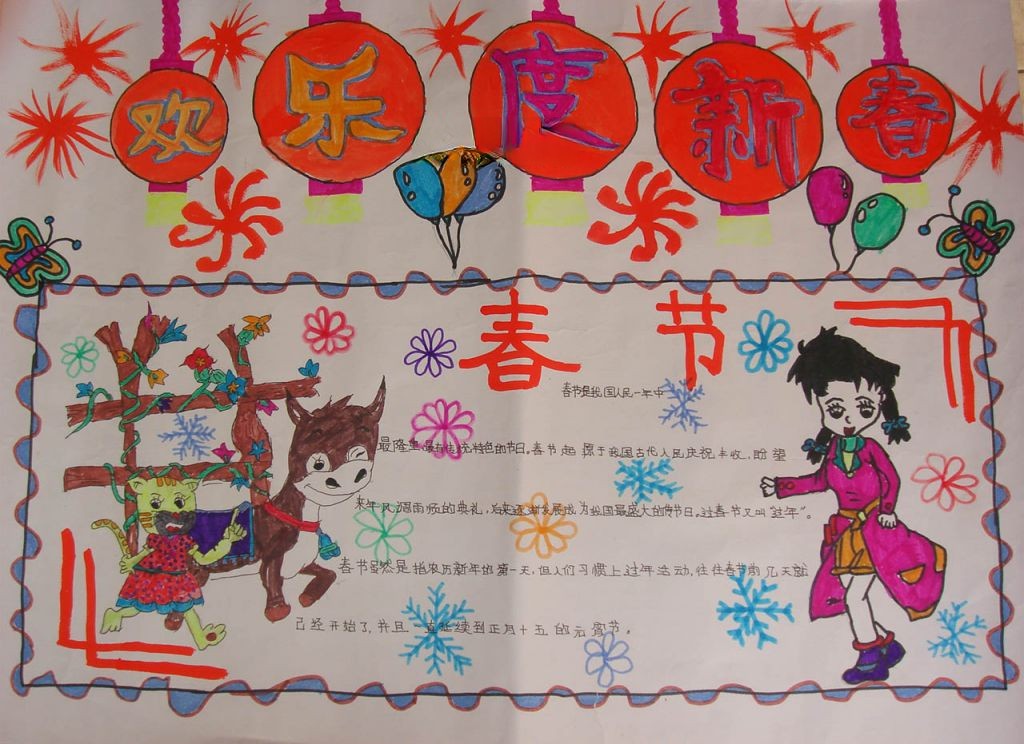 欢乐度新春
春节
春节是我国人民一年中
最隆重最有传统特色的节日。春节起源于我国古代人民庆祝丰收、盼望
来年风调雨顺的典礼，后来逐渐发展成为我国最盛大的传节日。过春节又叫“过年”。
春节虽然是指农历新年的第一天，但人们习惯上过年活动，往往春节前几天就
已经开始了，并且一直延续到正月十五的元宵节。